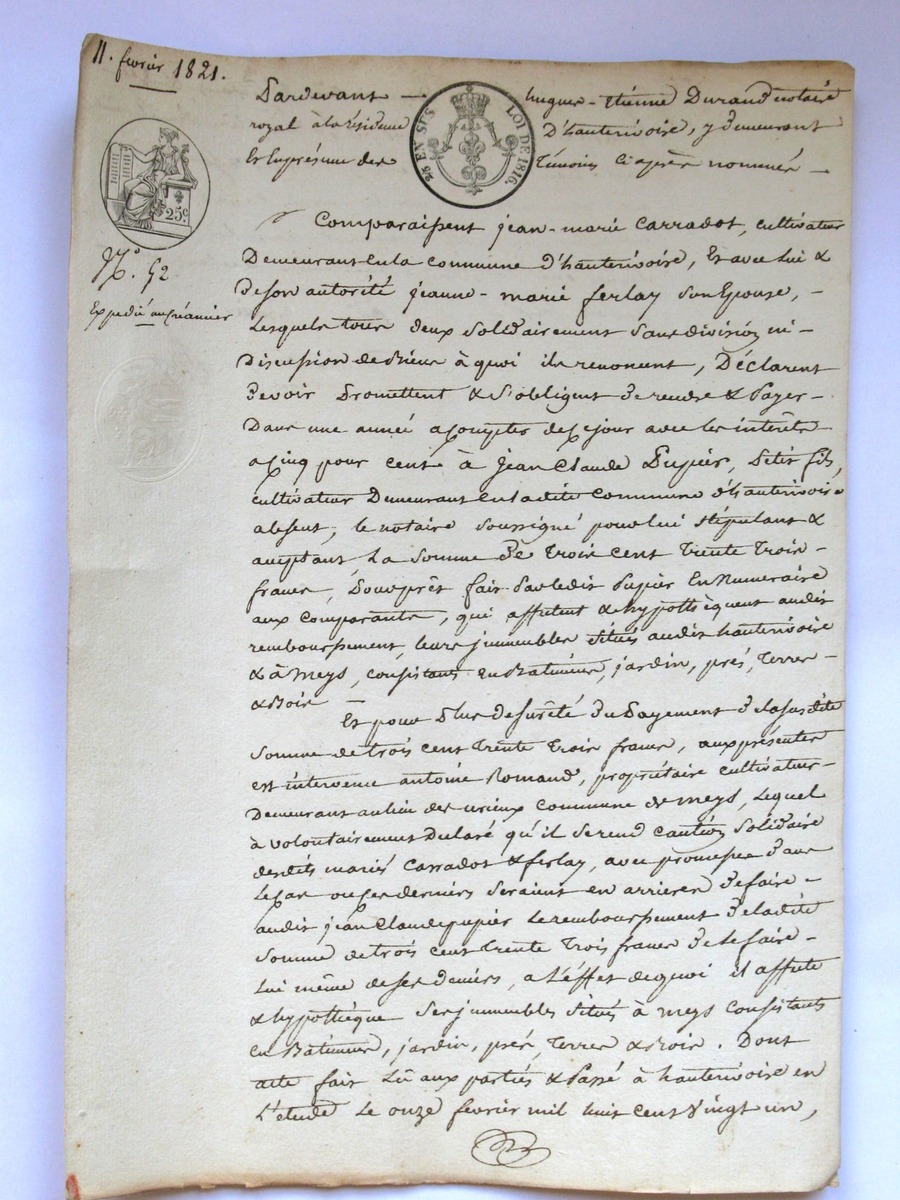 11. fevrier 1821.
Pardevant — hugues-Etienne Durand notaire
royal à la résidence D'hauterivoire, y demeurant
Et En présence des témoins ci après nommés —
25 EN SUS
LOI DE 1816.
25c.
N.° 52
Expedié au créancier
Comparaissent jean-marie Carradot, cultivateur
Demeurant en la commune d'hauterivoire, Et avec Lui &
de son autorité jeanne-marie ferlay son Epouse, -
Lesquels tous deux solidairement sans division ni -
Discussion de Biens à quoi ils renoncent, Déclarent
devoir Promettent & S'obligent de rendre & Payer -
Dans une année a compter de ce jour avec les intérêts
a cinq pour cent à Jean Claude Pupier, Petit fils,
cultivateur Demeurant en la dite commune d'hauterivoire
absent, le notaire soussigné pour lui stipulant &
acceptant, La Somme De trois cent trente trois -
francs, Pour prêt fait Par ledit Pupier En Numeraire
aux comparants, qui affectent & hypothèquent audit
remboursement, leurs immeubles situés audit hauterivoire
& à Meys, consistants en Batiments, jardin, prés, terres -
& Bois
Et pour Plus de sureté du Payement de la susdite
Somme de trois cent trente trois francs, aux présentes
est intervenu antoine Romand, propriétaire cultivateur -
Demeurant au lieu des commune de Meys, Lequel
à volontairement Declaré qu'il se rend caution solidaire
desdits mariés Carradot & ferlay, avec promesse dans
Le cas ou ces derniers seraient en arriere de faire -
audit jean Claude pupier Le remboursement de la dite
Somme de trois cent trente trois francs de le faire -
Lui même de ses deniers, a L'effet de quoi il affecte
& hypothèque ses immeubles situés à Meys consistants
en Batiments, jardin, prés, terres & Bois. Dont
acte fait Lû aux parties & Passé à hauterivoire en
L'etude Le onze fevrier mil huit cent vingt un,